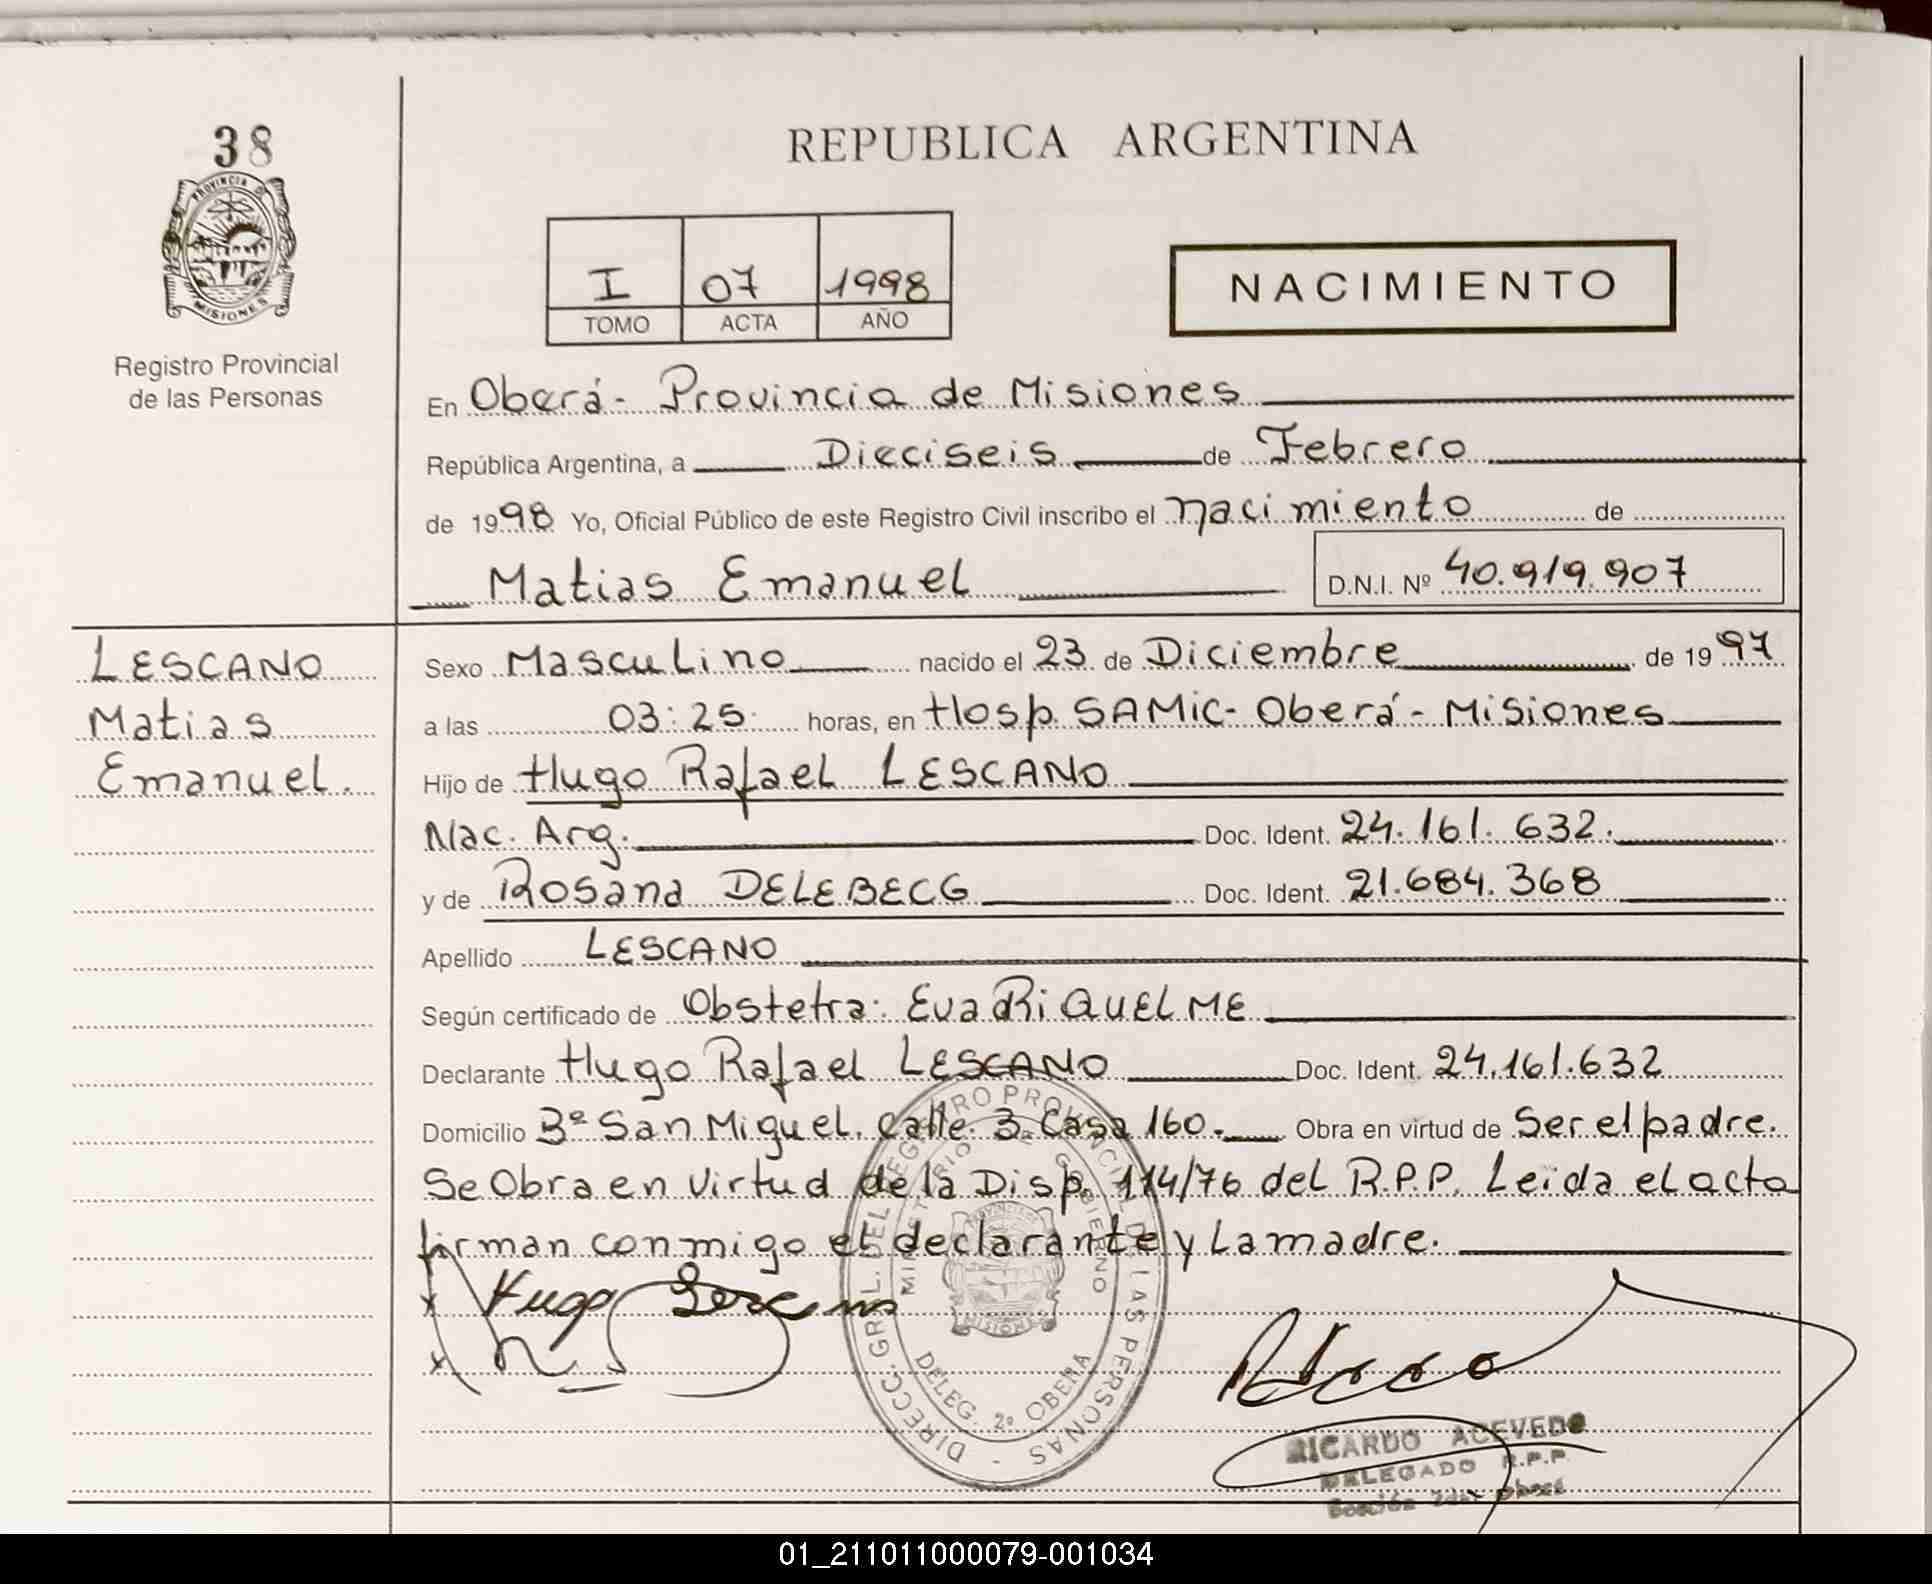 38
PROVINCIA DE
MISIONES
Registro Provincial
de las Personas
REPUBLICA ARGENTINA
I 07 1998
TOMO ACTA AÑO
NACIMIENTO
En Oberá - Provincia de Misiones
República Argentina, a Dieciseis de Febrero
de 1998 Yo, Oficial Público de este Registro Civil inscribo el nacimiento de
Matias Emanuel D.N.I. Nº 40.919.907
LESCANO
Matias
Emanuel.
Sexo Masculino nacido el 23 de Diciembre de 1997
a las 03:25 horas, en Hosp. SAMIC - Oberá - Misiones
Hijo de Hugo Rafael LESCANO
Nac. Arg. Doc. Ident. 24.161.632.
y de Rosana DELEBECG Doc. Ident. 21.684.368
Apellido LESCANO
Según certificado de Obstetra: Eva RiQUELME
Declarante Hugo Rafael LESCANO Doc. Ident. 24.161.632
Domicilio Bº San Miguel. Calle 3 Casa 160. Obra en virtud de Ser el padre.
Se Obra en Virtud de la Disp. 114/76 del R.P.P. Leida el acta
firman conmigo el declarante y La madre.
Hugo Lescano
DIRECC. GRAL. DEL REGISTRO PROVINCIAL DE LAS PERSONAS -
MINISTERIO DE GOBIERNO
MISIONES
DELEG. 2º OBERA
RICARDO ACEVEDO
DELEGADO R.P.P.
Sección 2da. Oberá
01_211011000079-001034